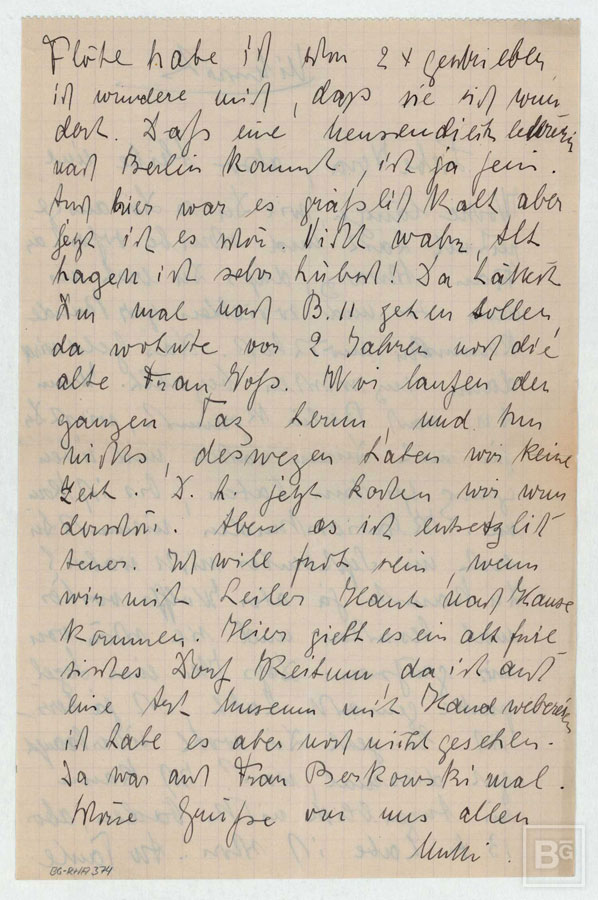 Flöte habe ich schon 2 x geschrieben,
ich wundere mich, daß sie sich wun
dert. Daß eine
nach Berlin kommt, ist ja fein.
Auch hier war es gräßlich kalt, aber
jetzt ist es schön. Nicht wahr, Alt
hagen ist sehr hübsch! Da hättest
Du mal nach B. 11 gehen sollen
da wohnte vor 2 Jahren noch die
alte Frau Voß. Wir laufen den
ganzen Tag herum, und tun
nichts, deswegen haben wir keine
Zeit. D. h. jetzt kochen wir wun
derschön. Aber es ist entsetzlich
teuer. Ich will froh sein, wenn
wir mit heiler Haut nach Hause
kommen. Hier giebt es ein altfrie
sisches Dorf Keitum, da ist auch
eine Art Museum mit Handweberei
ich habe es aber noch nicht gesehen.
Da war auch Frau Berkowski mal.
Grüße von uns allen
Mutti.
BG-RHA 374
BG